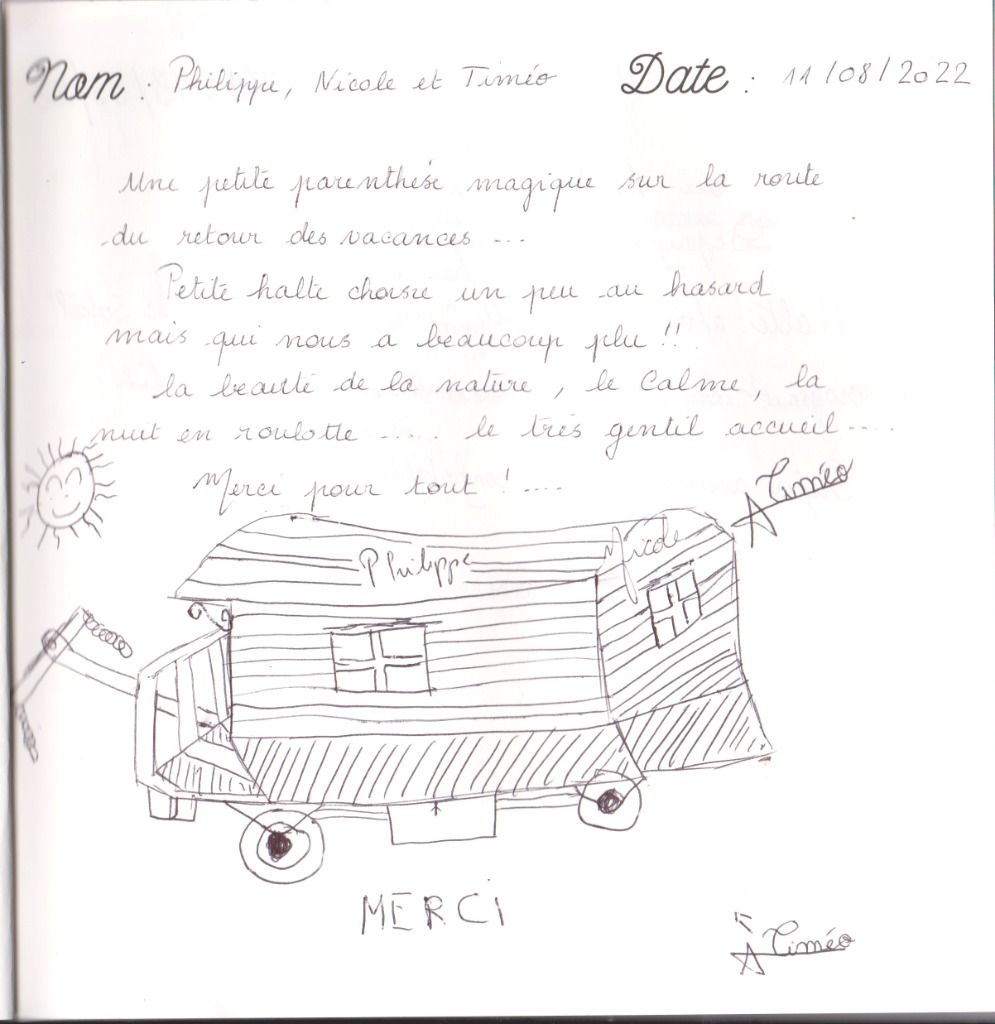 Nom : Philippe, Nicole et Timéo Date : 11/08/2022
Une petite parenthése magique sur la route
du retour des vacances ...
Petite halte choisie un peu au hasard
mais qui nous a beaucoup plu !!
la beauté de la nature, le Calme, la
nuit en roulotte ..... le très gentil accueil ....
Merci pour tout ! ....
Timéo
Philippe
Nicole
MERCi
Timéo